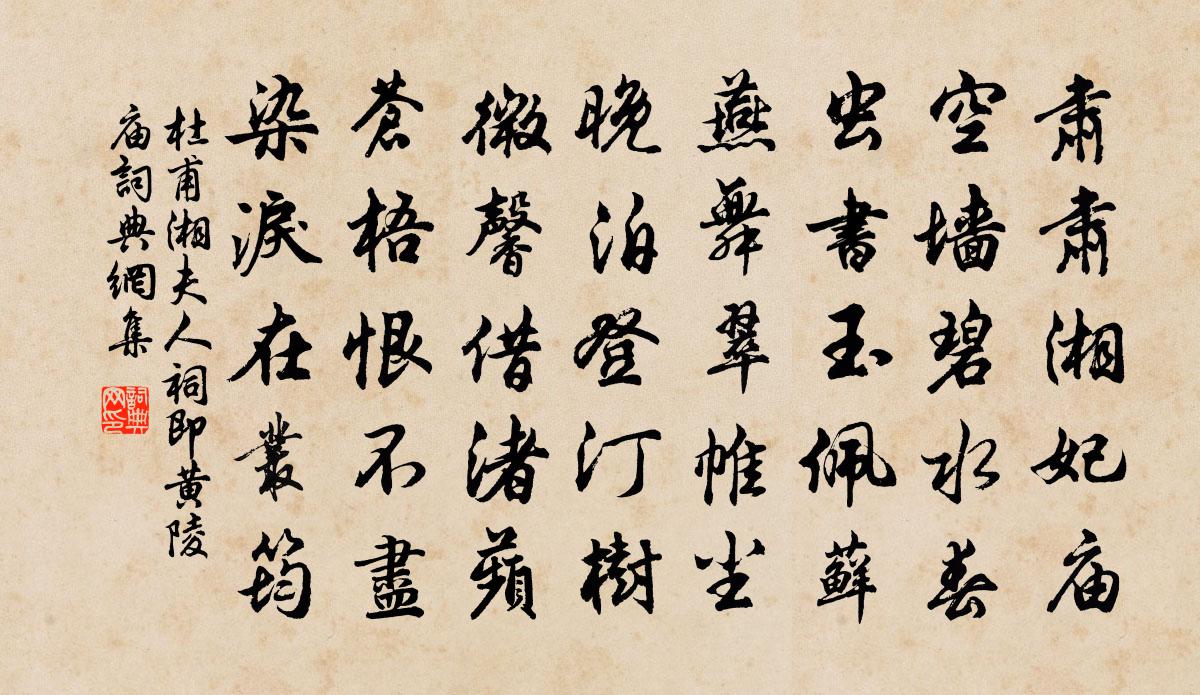 肅肅湘妃庙
空墙碧水春
虫書玉佩蘚
燕舞翠帷尘
晚泊登汀樹
微馨借渚蘋
蒼梧恨不盡
染淚在叢筠
杜甫湘夫人祠即黄陵
庙詞典網集
詞典
网印